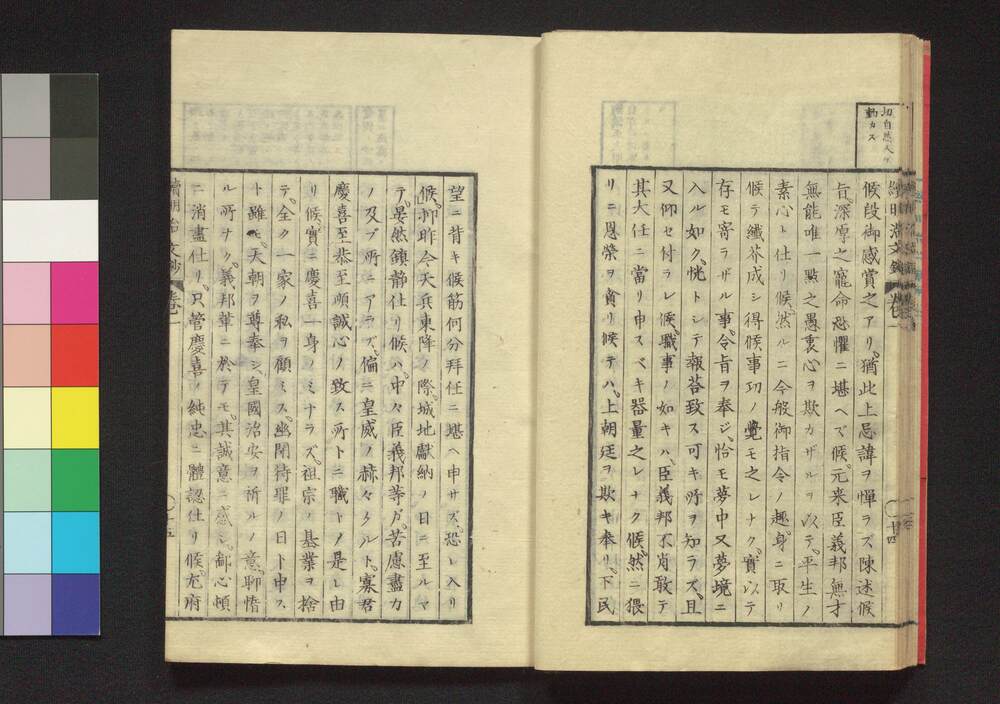 切自然人ヲ
動カス
續明治文鈔 卷一
候段御感賞之アリ。猶此上忌諱ヲ憚ラズ陳述候
旨。深厚之寵命恐懼ニ堪ヘズ候。元来臣義邦無才
無能唯一點之愚衷心ヲ欺カザルヲ以テ。平生ノ
素心ト仕リ候。然ルニ今般御指令ノ趣。身ニ取リ
候テ纖芥成シ得候事功ノ覺モ之レナク。實以テ
存モ寄ラザル事。令旨ヲ奉ジ。恰モ夢中又夢境ニ
入ル如ク。恍トシテ報荅致ス可キ所ヲ知ラズ。且
又仰セ付ラレ候。職事ノ如キハ。臣義邦不肖敢テ
其大任ニ當リ申スベキ器量之レナク候。然ニ猥
リニ恩榮ヲ貪リ候テハ。上朝廷ヲ欺キ奉リ。下民
十四
望ニ背キ候筋何分拜任ニ堪ヘ申サズ。恐レ入リ
候。抑昨今天兵東降ノ際。城地獻納ノ日ニ至ルマ
デ。晏然鎮静仕リ候ハ。中々臣義邦等ガ。苦慮盡力
ノ及ブ所ニアラズ。偏ニ皇威ノ赫々タルト。寡君
慶喜至恭至順誠心ノ致ス所トニ職トノ是レ由
リ候。實ニ慶喜一身ノミナラズ。祖宗ノ基業ヲ捨
テ。全ク一家ノ私ヲ顧ミス。幽閉待罪ノ日ト申ス
ト雖モ。天朝ヲ尊奉シ。皇國治安ヲ祈ルノ意。聊惰
ル所ナク。義邦輩ニ於テモ。其誠意ニ感シ。鄙心頓
ニ消盡仕リ。只管慶喜ノ純忠ニ體認仕リ候。尤府
續明治文鈔 卷一
十五